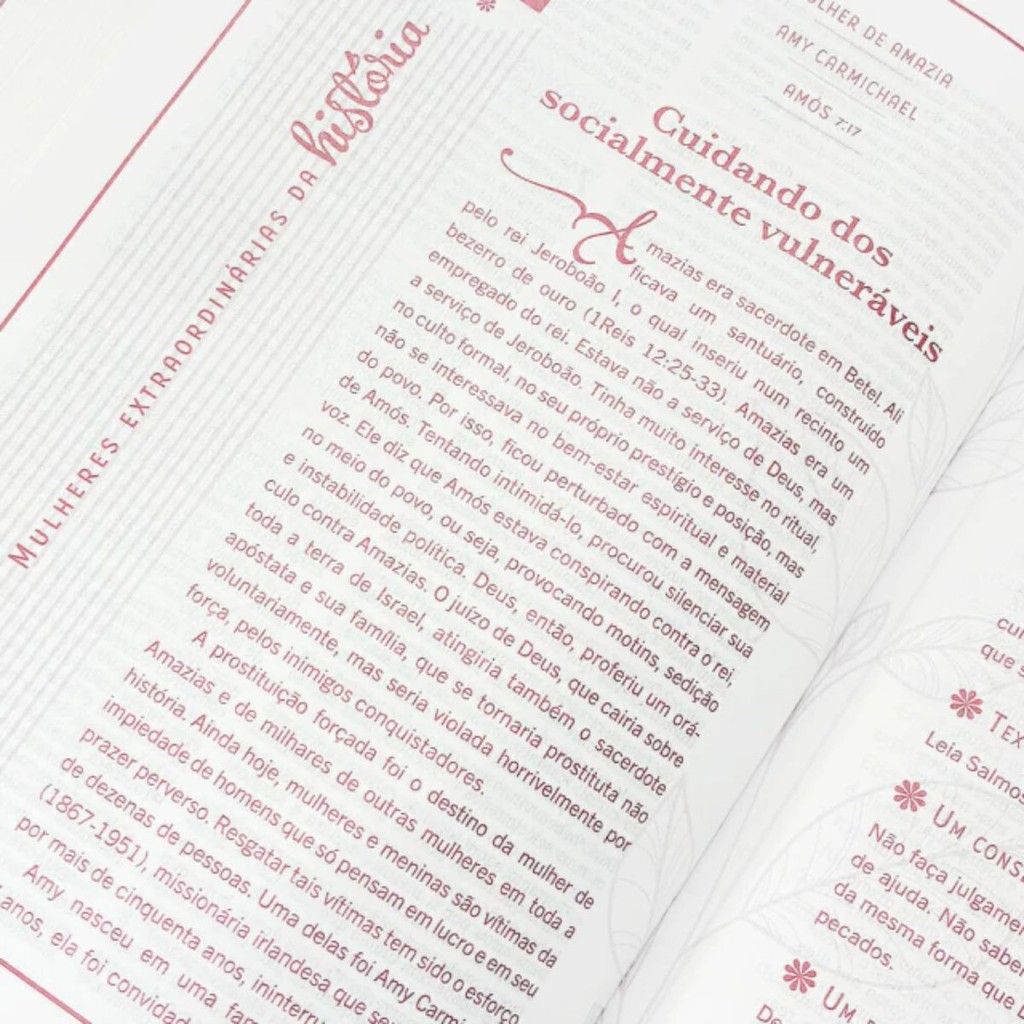 MULHERES EXTRAORDINÁRIAS DA história
LHER DE AMAZIA
AMY CARMICHAEL
AMÓS 7:17
Cuidando dos
socialmente vulneráveis
Amazias era sacerdote em Betel. Ali
ficava um santuário, construído
pelo rei Jeroboão I, o qual inseriu num recinto um
bezerro de ouro (1Reis 12:25-33). Amazias era um
empregado do rei. Estava não a serviço de Deus, mas
a serviço de Jeroboão. Tinha muito interesse no ritual,
no culto formal, no seu próprio prestígio e posição, mas
não se interessava no bem-estar espiritual e material
do povo. Por isso, ficou perturbado com a mensagem
de Amós. Tentando intimidá-lo, procurou silenciar sua
voz. Ele diz que Amós estava conspirando contra o rei,
no meio do povo, ou seja, provocando motins, sedição
e instabilidade política. Deus, então, proferiu um orá-
culo contra Amazias. O juízo de Deus, que cairia sobre
toda a terra de Israel, atingiria também o sacerdote
apóstata e sua família, que se tornaria prostituta não
voluntariamente, mas seria violada horrivelmente por
força, pelos inimigos conquistadores.
A prostituição forçada foi o destino da mulher de
Amazias e de milhares de outras mulheres em toda a
história. Ainda hoje, mulheres e meninas são vítimas da
impiedade de homens que só pensam em lucro e em seu
prazer perverso. Resgatar tais vítimas tem sido o esforço
de dezenas de pessoas. Uma delas foi Amy Carmi
(1867-1951), missionária irlandesa que se
por mais de cinquenta anos, ininterru
Amy nasceu em uma fam
anos, ela foi convidad
cur
que s
TEX
Leia Salmos
UM CONS
Não faça julgame
de ajuda. Não sabe
da mesma forma que
pecados.
UM
De